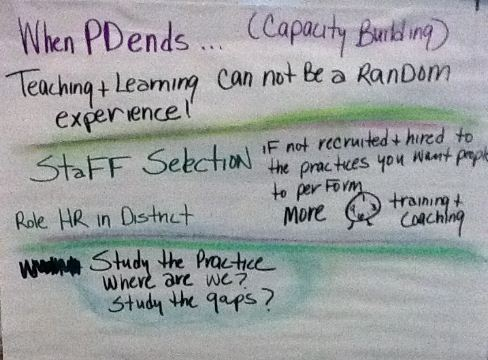 When PD ends... (Capacity Building)
Teaching + Learning Can not Be a RanDom
experience!
StaFF Selection
iF not recruited + hired to
the practices you want peopl
to perForm
More training +
Coaching
Role HR in District
Study the Practice
Where are we?
Study the gaps?